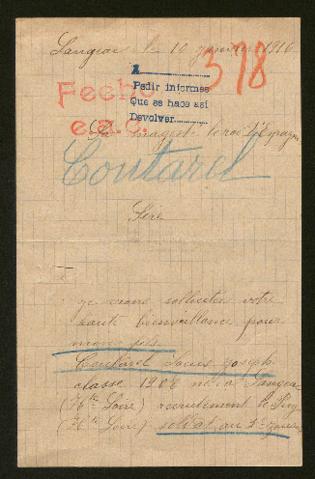 Langeac le 10 janvier 1916
378
A
Pedir informes
Que se hace así
Devolver
Fecho
e.a.c.
majesté le roi d'Espagne
Coutarel
Sire
je viens solliciter votre
haute bienveillance pour
mon fils
Coutarel Louis Joseph
classe 1908 né à Langeac
(Hte Loire) recrutement le Puy
(Hte Loire) soldat au 2e